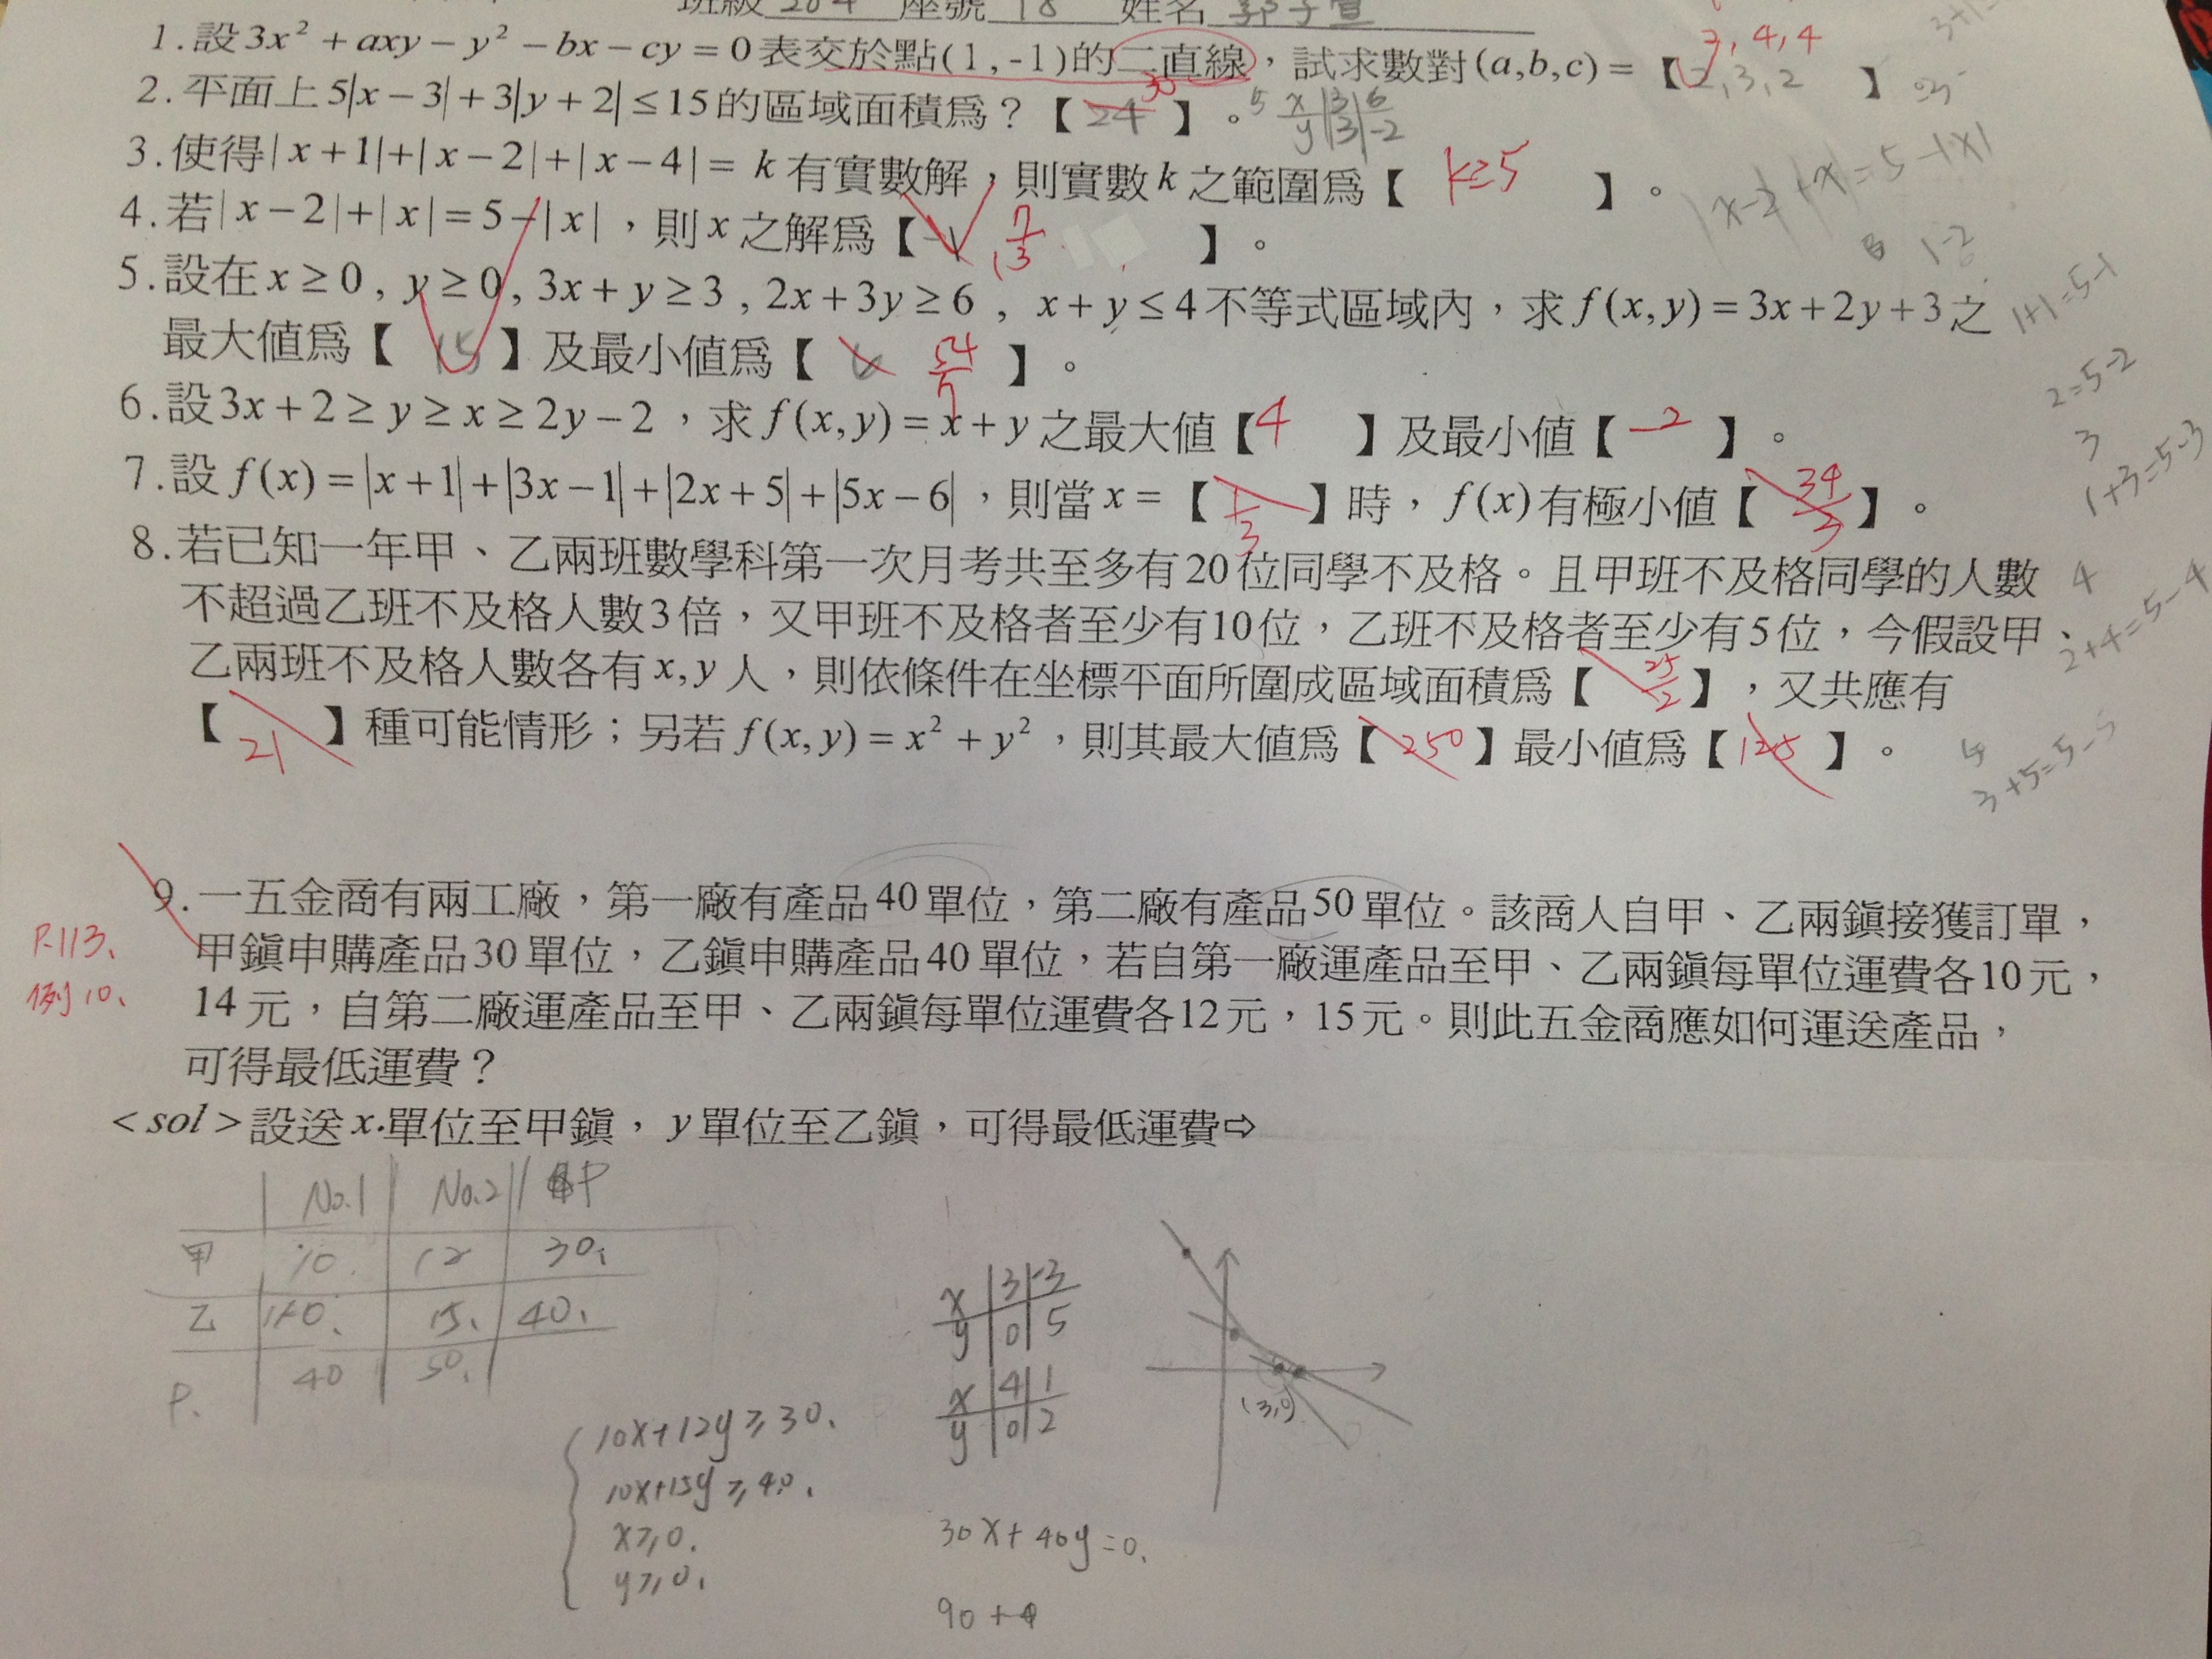 班級 204 座號 18 姓名
1.設3x² + axy − y² − bx − cy = 0表交於點(1,-1)的二直線，試求數對(a,b,c) =【2,3,2】
2,4,4
2.平面上5|x − 3| + 3|y + 2| ≤ 15的區域面積為？【24】。
30
x 3 6
y 3 -2
3.使得|x+1|+|x−2|+|x−4| = k 有實數解，則實數k之範圍為【 k≥5 】。
|x-2|+|x|=5-|x|
4.若|x−2|+|x|=5−|x|，則x之解為【 -1, 7/3 】。
5.設在x ≥ 0 , y ≥ 0 , 3x + y ≥ 3 , 2x + 3y ≥ 6 , x + y ≤ 4不等式區域內，求f(x,y) = 3x + 2y + 3之
最大值為【 15 】及最小值為【 6 54/7 】。
1+1=5-1
2=5-2
6.設3x + 2 ≥ y ≥ x ≥ 2y − 2，求f(x,y) = x + y之最大值【4 】及最小值【 -2 】。
3
1+3=5-3
7.設f(x) = |x+1| + |3x−1| + |2x+5| + |5x−6|，則當x =【 1/3 】時，f(x)有極小值【 34/3 】。
8.若已知一年甲、乙兩班數學科第一次月考共至多有20位同學不及格。且甲班不及格同學的人數
不超過乙班不及格人數3倍，又甲班不及格者至少有10位，乙班不及格者至少有5位，今假設甲、
4
2+4=5-4
乙兩班不及格人數各有x,y人，則依條件在坐標平面所圍成區域面積為【 25/2 】，又共應有
【 21 】種可能情形；另若f(x,y) = x² + y²，則其最大值為【 250 】最小值為【 125 】。
5
3+5=5-5
9.一五金商有兩工廠，第一廠有產品40單位，第二廠有產品50單位。該商人自甲、乙兩鎮接獲訂單，
P.113、
甲鎮申購產品30單位，乙鎮申購產品40單位，若自第一廠運產品至甲、乙兩鎮每單位運費各10元，
例10、
14元，自第二廠運產品至甲、乙兩鎮每單位運費各12元，15元。則此五金商應如何運送產品，
可得最低運費？
<sol>設送x單位至甲鎮，y單位至乙鎮，可得最低運費⇨
No.1 No.2
甲 10. 12 30.
乙 15. 40.
P. 40 50.
x 3 -3
y 0 5
x 4 1
y 0 2
(3,0)
10x+12y≥30.
10x+15y≥40.
x≥0.
y≥0.
30x+40y=0.
90+4